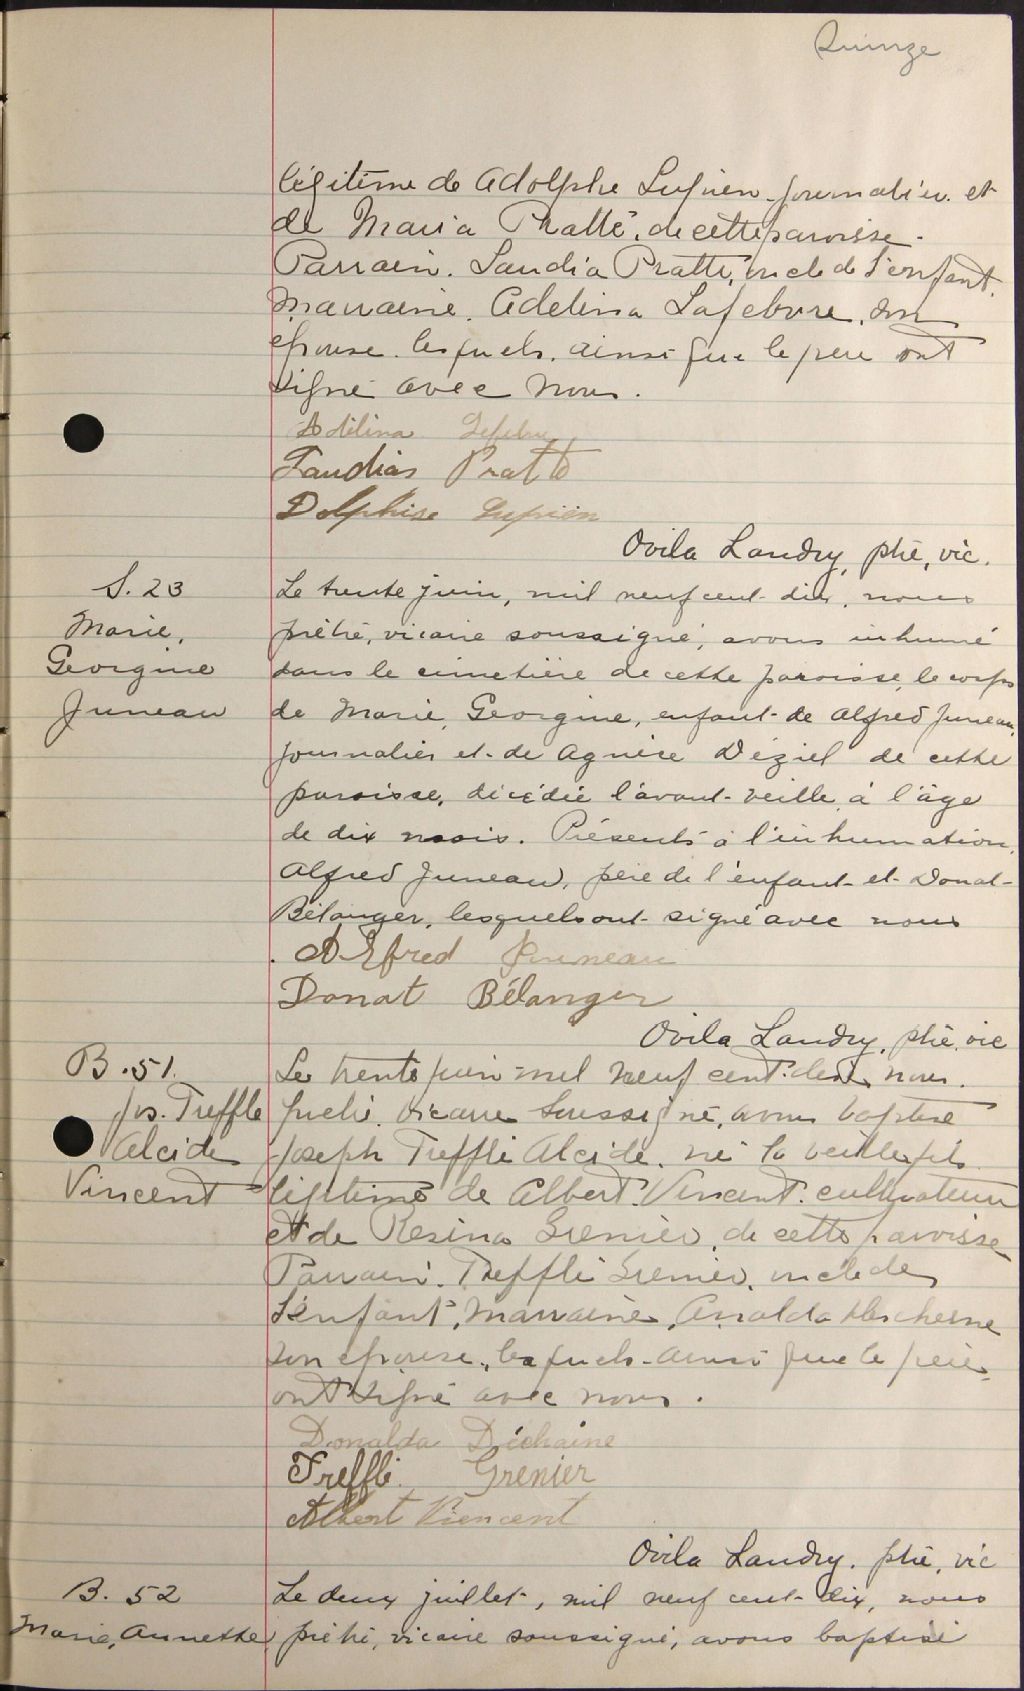 Quinze
légitime de Adolphe Lupien journalier et
de Maria Pratte, de cette paroisse.
Parrain. Laudia Pratte, oncle de l'enfant.
Marraine. Adelina Lafebvre, son
épouse. lesquels, ainsi que le père ont
signé avec nous.
Adélina Lefebvre
Laudias Pratte
Dolphise Lupien
Ovila Landry, ptre, vic.
S. 23
Marie,
Georgine
Juneau
Le trente juin, mil neuf cent dix, nous
prêtre, vicaire soussigné, avons inhumé
dans le cimetière de cette paroisse, le corps
de Marie, Georgine, enfant de Alfred Juneau,
journalier et de Agnèse Déziel de cette
paroisse, décédée l'avant-veille, à l'âge
de dix mois. Présents à l'inhumation,
Alfred Juneau, père de l'enfant et Donat
Bélanger, lesquels ont signé avec nous
Alfred Juneau
Donat Bélanger
Ovila Landry, ptre, vic
B. 51.
Jos. Treffle
Alcide
Vincent
Le trente juin mil neuf cent dix nous.
prêtre. vicaire soussigné, avons baptisé
Joseph Treffle Alcide, né la veille, fils
légitime de Albert Vincent. cultivateur
et de Rosina Grenier, de cette paroisse
Parrain. Treffle Grenier, oncle de
l'enfant, Marraine, Deschesne
son épouse, lesquels ainsi que le père
ont signé avec nous.
Donalda Déchaine
Treffle Grenier
Albert Viencent
Ovila Landry. ptre, vic
B. 52
Marie, Annette
Le deux juillet, mil neuf cent dix, nous
prêtre, vicaire soussigné, avons baptisé